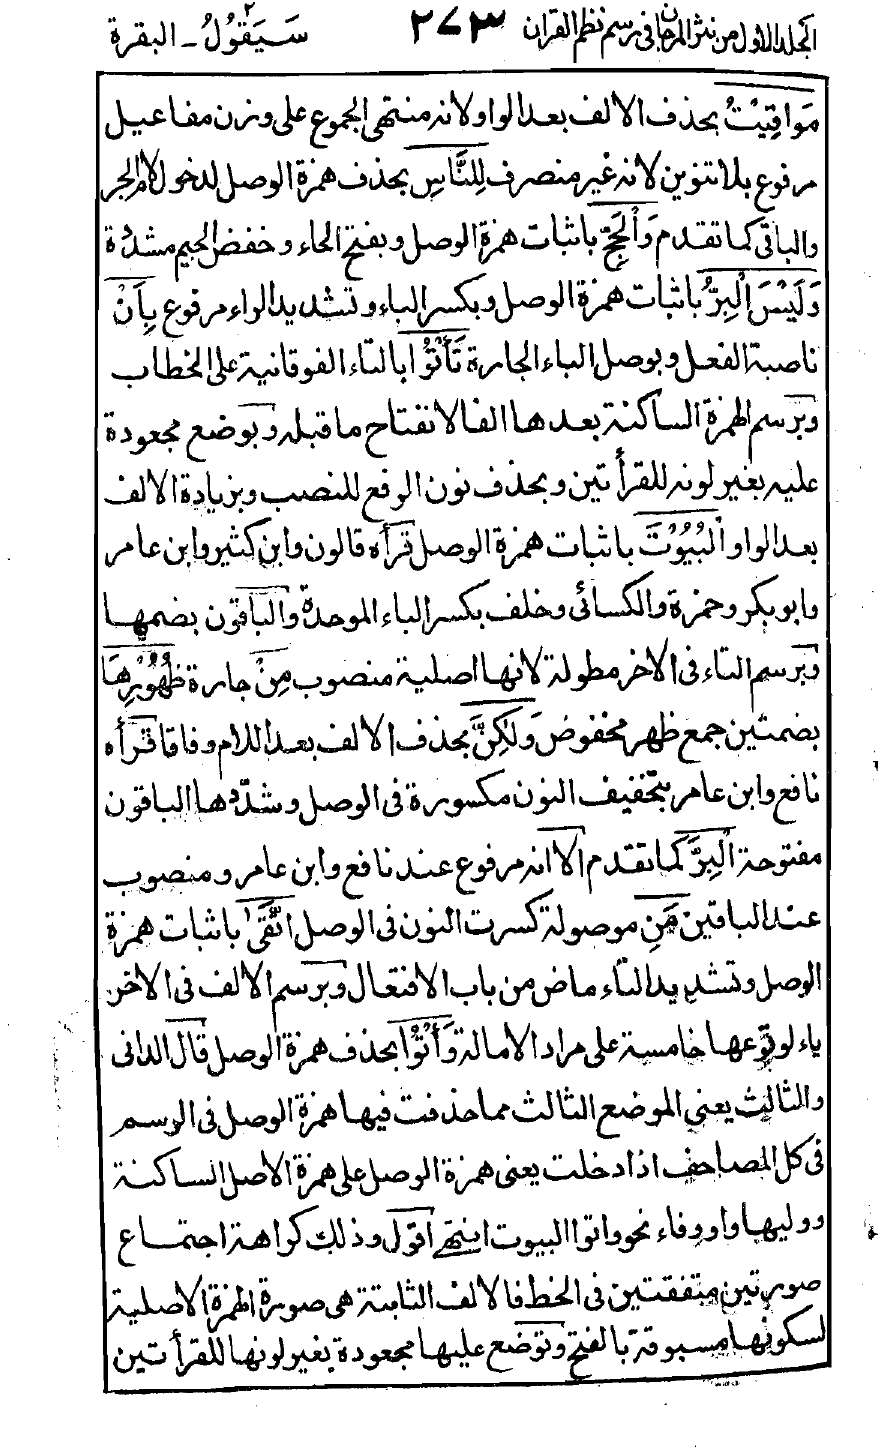 المجلد الاول من نثر المرجان في رسم نظم القران ٢٧٣ سَيَقُولُ٢ - البقرة
مَوَاقِيْتُ بحذف الالف بعد الواو لانه منتهى الجموع على وزن مفاعيل
مرفوع بلا تنوين لانه غير منصرف لِلنَّاسِ بحذف همزة الوصل لدخول لام الجر
والباقى كما تقدم وَالْحَجِّ باثبات همزة الوصل وبفتح الحاء وخفض الجيم مشددة
وَلَيْسَ الْبِرُّ باثبات همزة الوصل وبكسر الباء وتشديد الراء مرفوع بِاَنْ
ناصبة الفعل وبوصل الباء الجارة تَأْتُوْا بالتاء الفوقانية على الخطاب
وبرسم الهمزة الساكنة بعدها الفا لانفتاح ما قبله وبوضع مجعودة
عليه بغير لونه للقرأتين وبحذف نون الرفع للنصب وبزيادة الالف
بعد الواو الْبُيُوْتَ باثبات همزة الوصل قرأه قالون وابن كثير وابن عامر
وابو بكر وحمزة والكسائى وخلف بكسر الباء الموحدة والباقون بضمها
وبرسم التاء فى الاخر مطولة لانها اصلية منصوب مِنْ جارة ظُهُوْرِهَا
بضمتين جمع ظهر مخفوض وَلٰكِنَّ بحذف الالف بعد اللام وفاقا قرأه
نافع وابن عامر بتخفيف النون مكسورة فى الوصل وشدّدها الباقون
مفتوحة الْبِرَّ كما تقدم الا انه مرفوع عند نافع وابن عامر ومنصوب
عند الباقين مَنِ موصولة كسرت النون فى الوصل اتَّقٰى باثبات همزة
الوصل وتشديد التاء ماض من باب الافتعال وبرسم الالف فى الاخر
ياء لوقوعها خامسة على مراد الامالة وَأْتُوْا بحذف همزة الوصل قال الدانى
والثالث يعنى الموضع الثالث مما حذفت فيها همزة الوصل فى الرسم
فى كل المصاحف اذا دخلت يعنى همزة الوصل على همزة الاصل الساكنة
ووليها واو وفاء نحو واتوا البيوت انتهى اقول وذلك كراهة اجتماع
صورتين متفقتين فى الخط فالالف الثابتة هى صورة الهمزة الاصلية
لسكونها مسبوقة بالفتح وتوضع عليها مجعودة بغير لونها للقرأتين